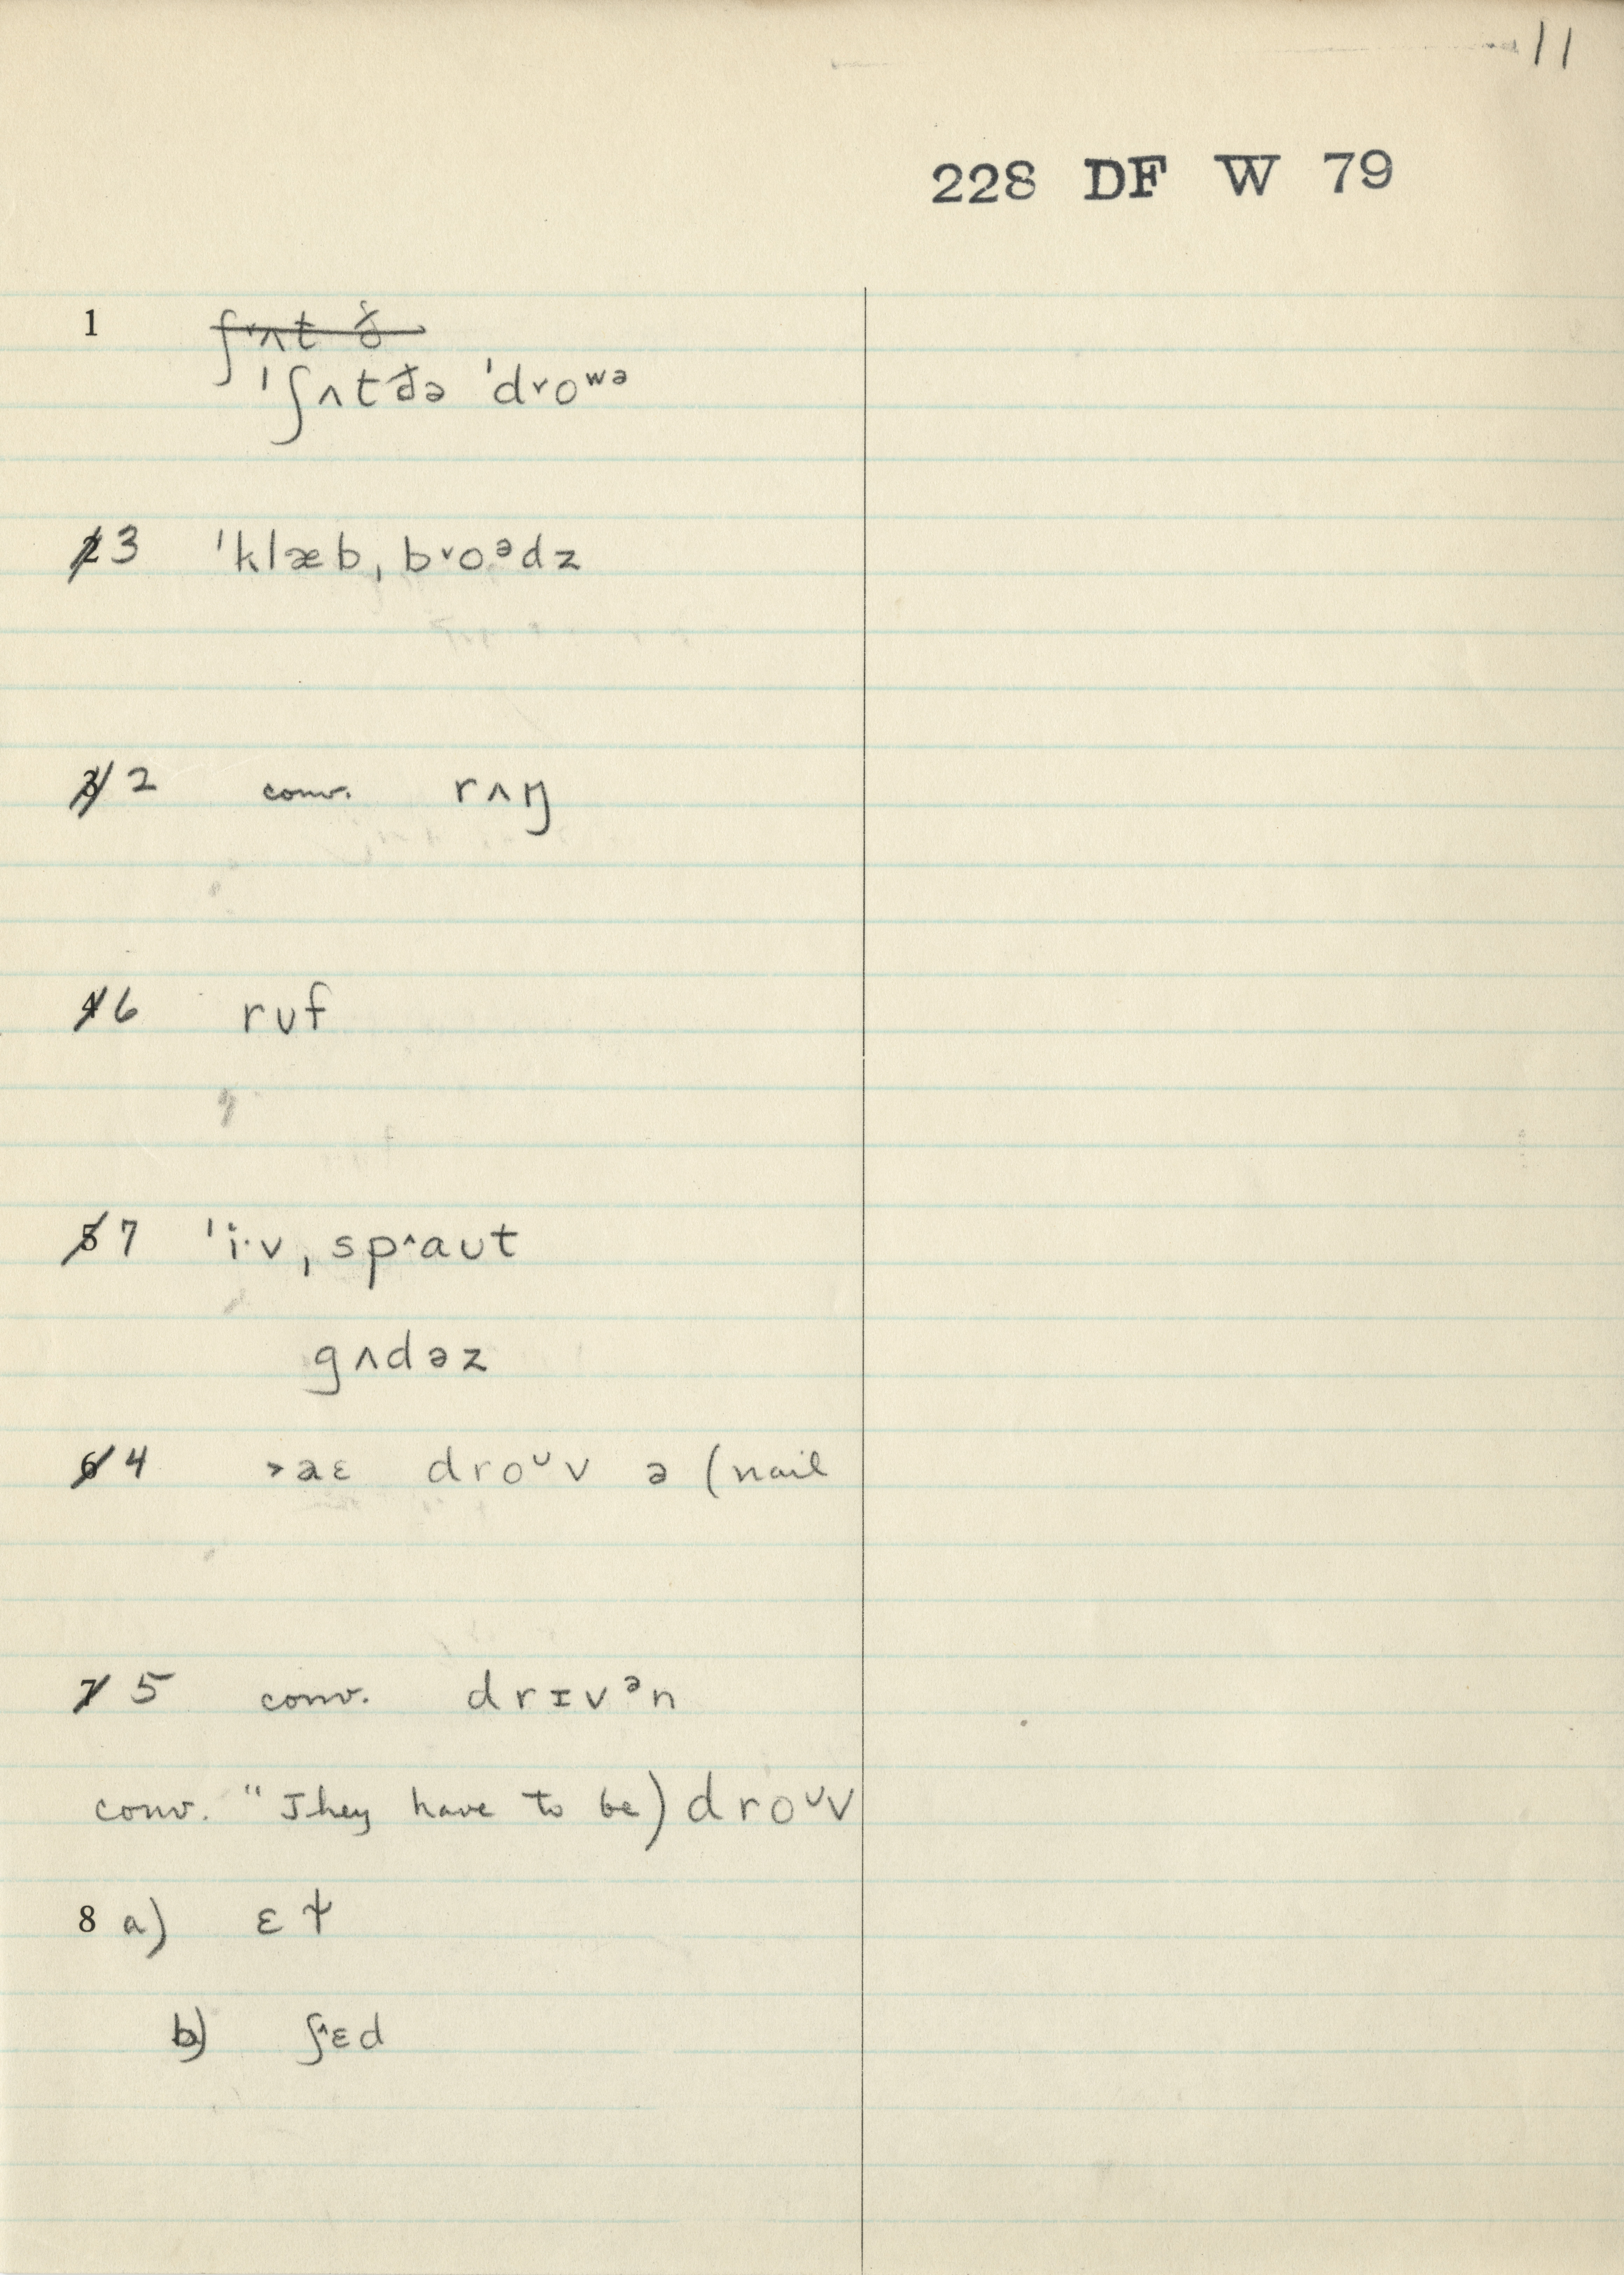 11
228 DF W 79
1 ʃ˅ʌt ð
ˈʃʌt ðə ˈdr˅oʷᵊ
2 3 ˈklæbˌb˅oᵊdz
3 2 conv. rʌŋ
4 6 rʊf
5 7 ˈi·vˌsp^aʊt
gʌdəz
6 4 >aɛ droᶷv ə (nail
7 5 conv. drɪvᵊn
conv. "They have to be) droᶷv
8 a) ɛt
b) ʃ^ɛd